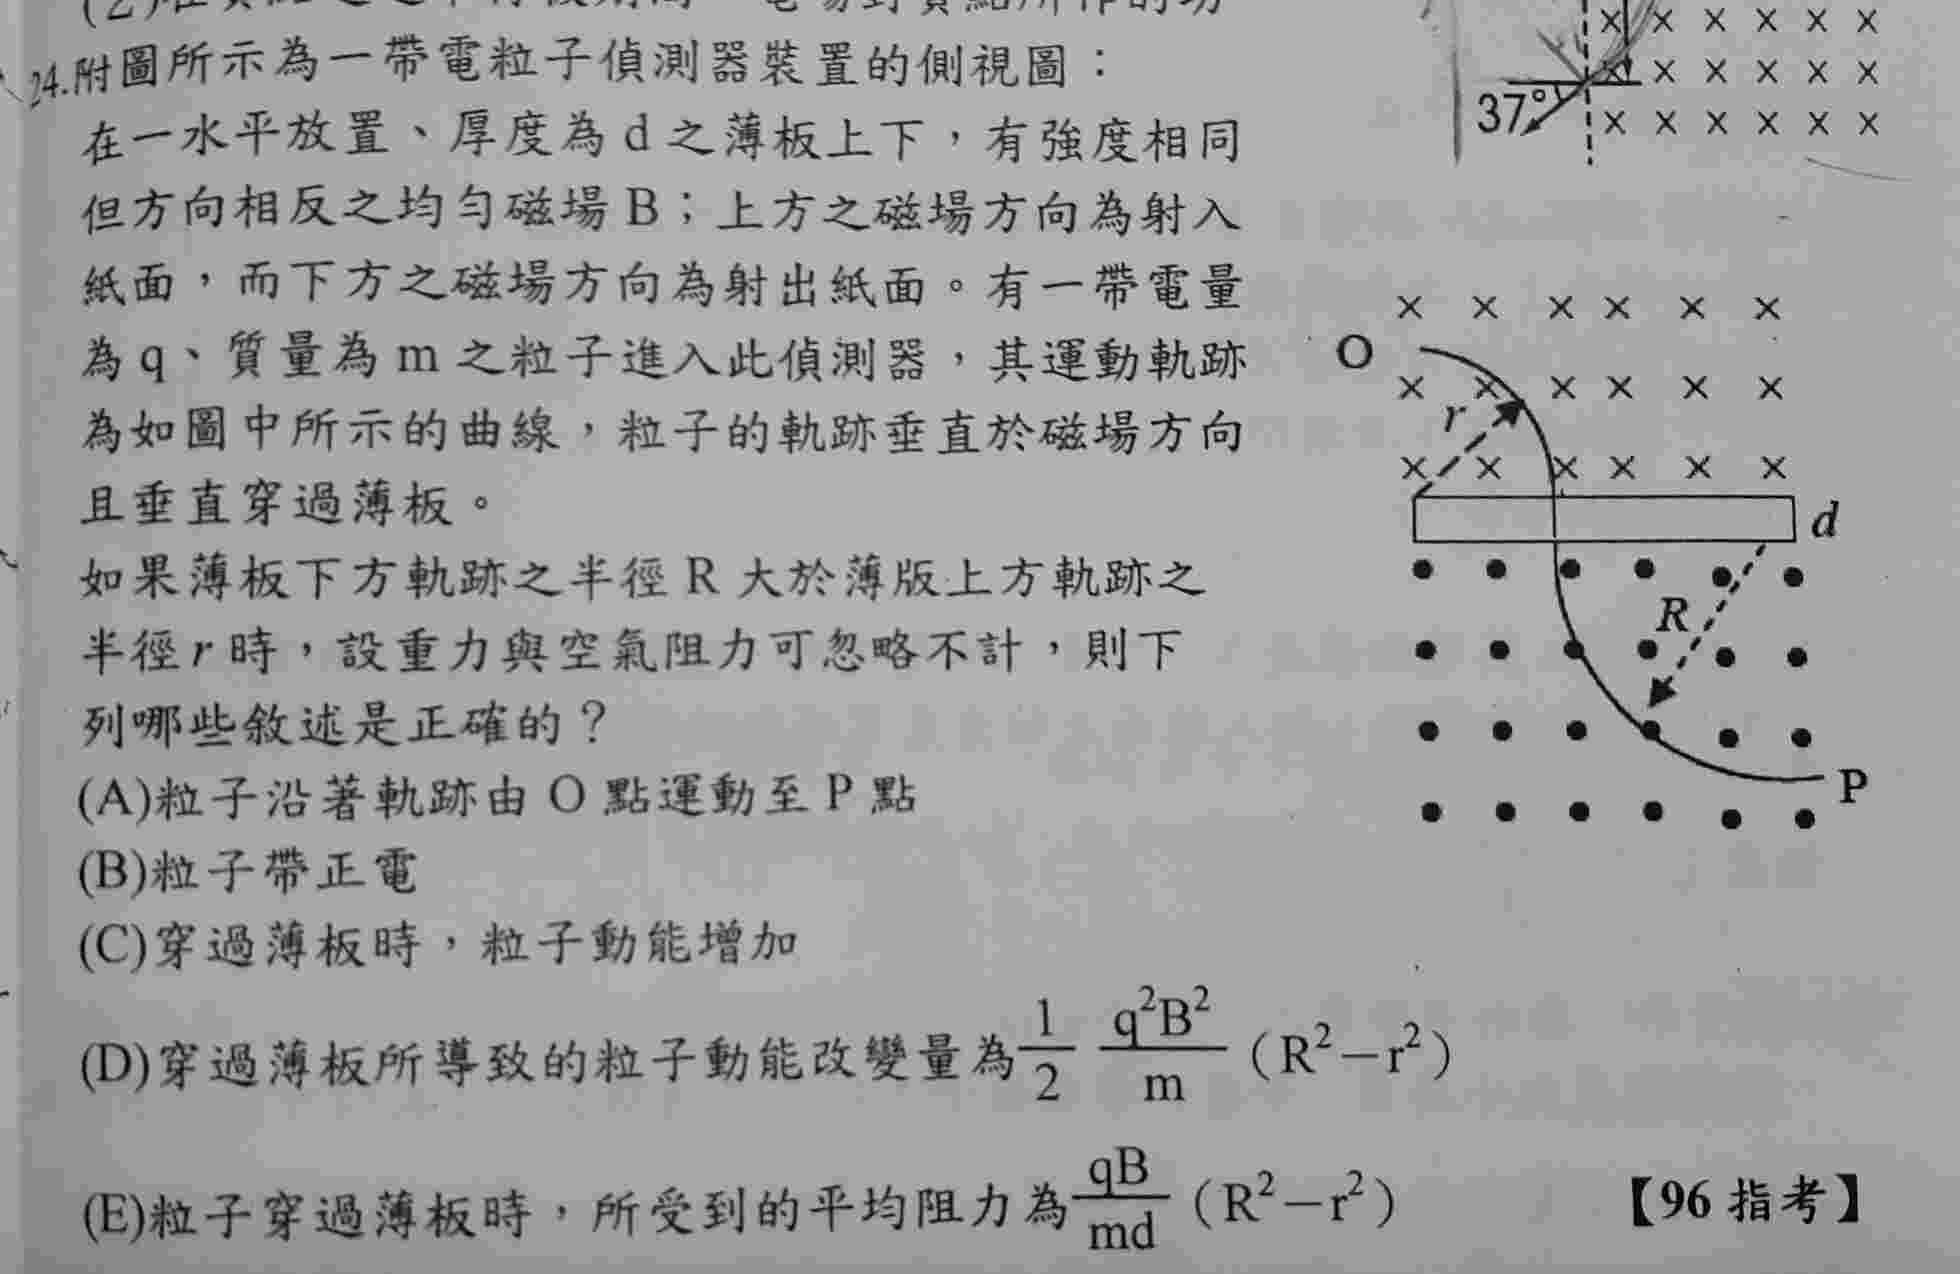 37°
24.附圖所示為一帶電粒子偵測器裝置的側視圖：
在一水平放置、厚度為d之薄板上下，有強度相同
但方向相反之均勻磁場B；上方之磁場方向為射入
紙面，而下方之磁場方向為射出紙面。有一帶電量
為q、質量為m之粒子進入此偵測器，其運動軌跡
為如圖中所示的曲線，粒子的軌跡垂直於磁場方向
且垂直穿過薄板。
如果薄板下方軌跡之半徑R大於薄版上方軌跡之
半徑r時，設重力與空氣阻力可忽略不計，則下
列哪些敘述是正確的？
O
r
d
R
P
(A)粒子沿著軌跡由O點運動至P點
(B)粒子帶正電
(C)穿過薄板時，粒子動能增加
(D)穿過薄板所導致的粒子動能改變量為1/2 q²B²/m（R²－r²）
(E)粒子穿過薄板時，所受到的平均阻力為qB/md（R²－r²） 【96 指考】